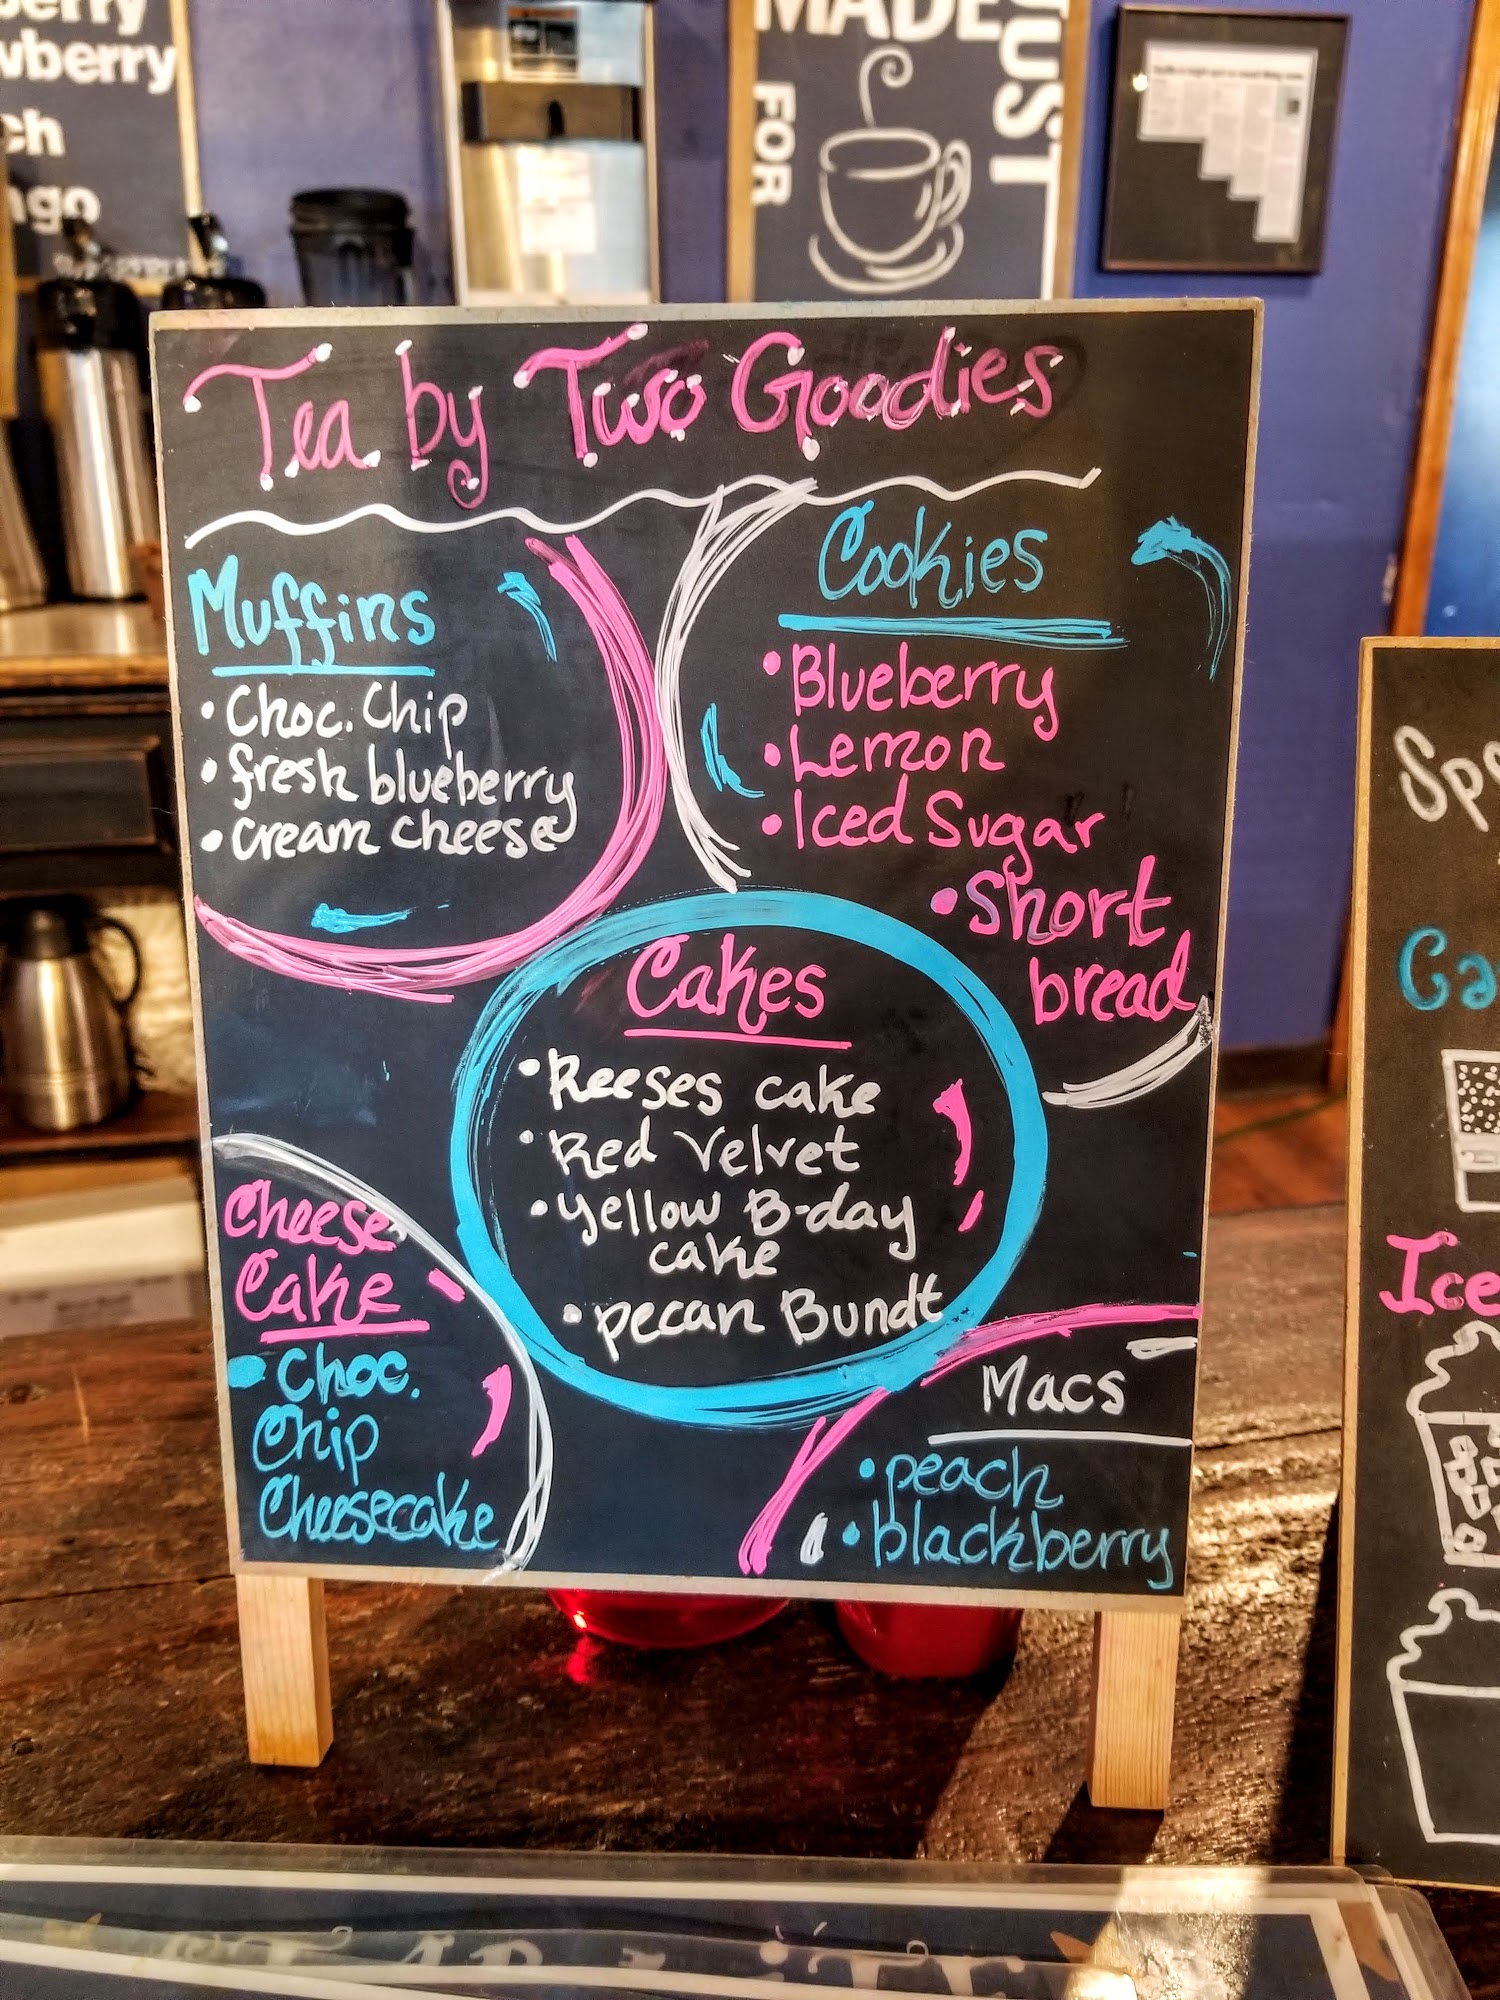 MADE
JUST
FOR
Tea by Two Goodies
Muffins
• Choc. Chip
• fresh blueberry
• cream cheese
Cookies
• Blueberry
• Lemon
• Iced Sugar
• Short
bread
Cakes
• Reeses cake
• Red Velvet
• Yellow B-day
cake
• pecan Bundt
Cheese
Cake
• Choc.
Chip
Cheesecake
Macs
• peach
• blackberry